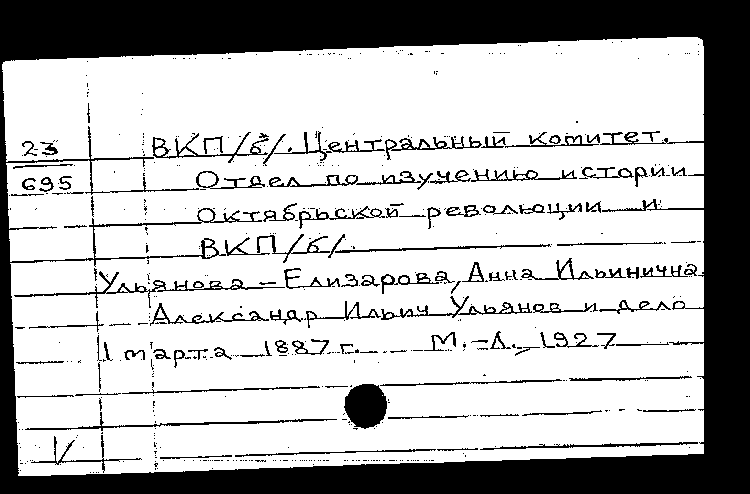 23
695
ВКП/б/. Центральный комитет.
Отдел по изучению истории
Октябрьской революции и
ВКП/б/.
Ульянова-Елизарова, Анна Ильинична.
Александр Ильич Ульянов и дело
1 марта 1887 г. М.-Л., 1927
V